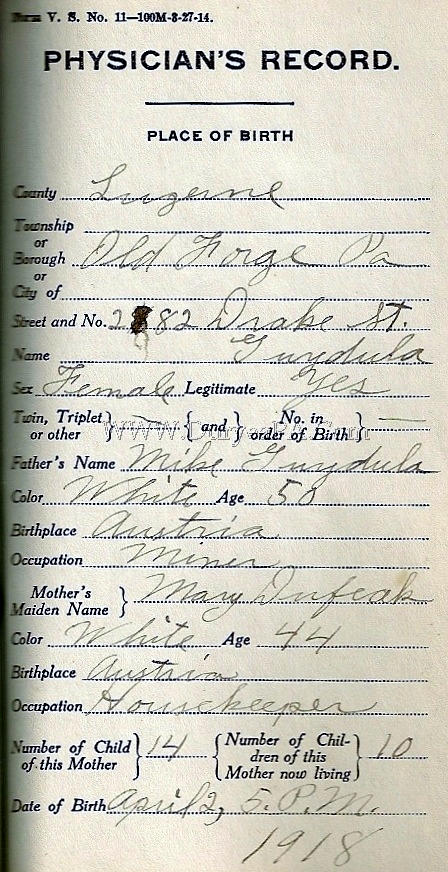 Form V. S. No. 11—100M-8-27-14.
PHYSICIAN'S RECORD.
PLACE OF BIRTH
County Luzerne
Township
or
Borough Old Forge Pa
or
City of
Street and No. 2 82 Drake St.
Name Gwydula
Sex Female Legitimate Yes
Twin, Triplet or other — { and } No. in order of Birth —
Father's Name Mike Gwydula
Color White Age 50
Birthplace Austria
Occupation Miner
Mother's Maiden Name } Mary Dufcak
Color White Age 44
Birthplace Austria
Occupation Housekeeper
Number of Child of this Mother } 14 { Number of Children of this Mother now living } 10
Date of Birth April 2, 5. P.M.
1918